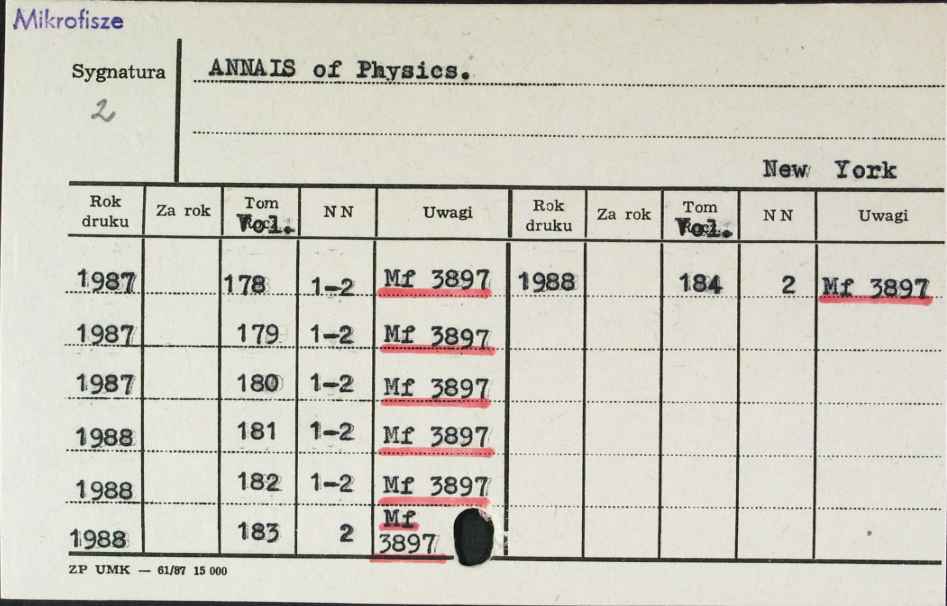 Mikrofisze
Sygnatura ANNAIS of Physics.
2
New York
Rok druku Za rok Tom Vol. NN Uwagi Rok druku Za rok Tom Vol. NN Uwagi
1987 178 1-2 Mf 3897 1988 184 2 Mf 3897
1987 179 1-2 Mf 3897
1987 180 1-2 Mf 3897
1988 181 1-2 Mf 3897
1988 182 1-2 Mf 3897
1988 183 2 Mf 3897
ZP UMK — 61/87 15 000